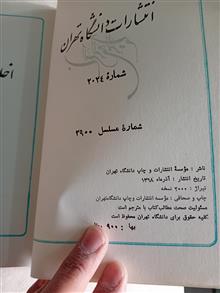 انتشارات دانشگاه تهران
شمارهٔ ۲۰۲۴
شمارهٔ مسلسل ۳۹۰۰
ناشر : مؤسسهٔ انتشارات و چاپ دانشگاه تهران
تاریخ انتشار : آذرماه ۱۳۶۸
تیراژ : ۲۰۰۰ نسخه
چاپ و صحافی : مؤسسهٔ انتشارات و چاپ دانشگاه تهران
مسئولیت صحت مطالب کتاب با مترجم است
کلیه حقوق برای دانشگاه تهران محفوظ است
بها : ۹۰۰